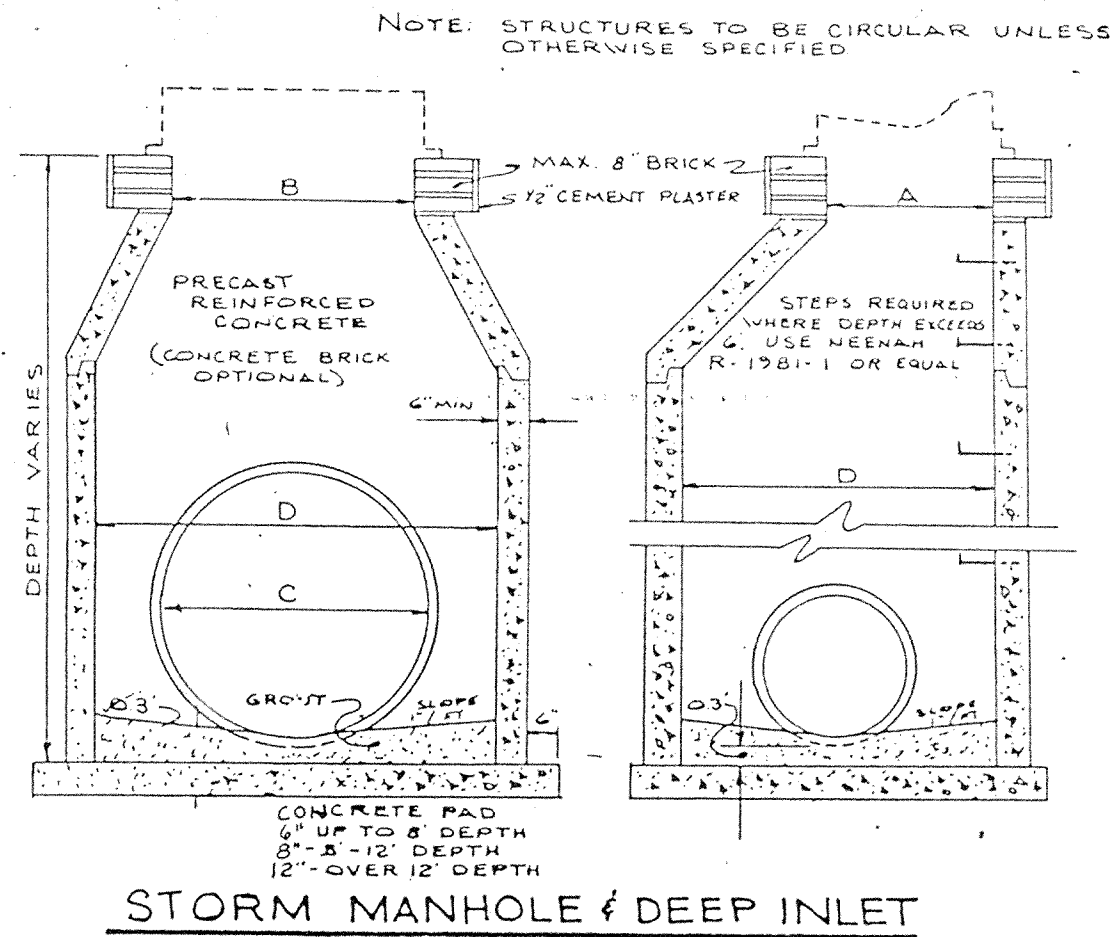 NOTE: STRUCTURES TO BE CIRCULAR UNLESS
OTHERWISE SPECIFIED
MAX. 8" BRICK
1/2" CEMENT PLASTER
B
A
PRECAST
REINFORCED
CONCRETE
(CONCRETE BRICK
OPTIONAL)
STEPS REQUIRED
WHERE DEPTH EXCEEDS
6' USE NEENAH
R-1981-1 OR EQUAL
DEPTH VARIES
6" MIN
D
D
C
0.3'
GROUT
SLOPE
6"
0.3'
SLOPE
CONCRETE PAD
6" UP TO 8' DEPTH
8"-8'-12' DEPTH
12"-OVER 12' DEPTH
STORM MANHOLE & DEEP INLET